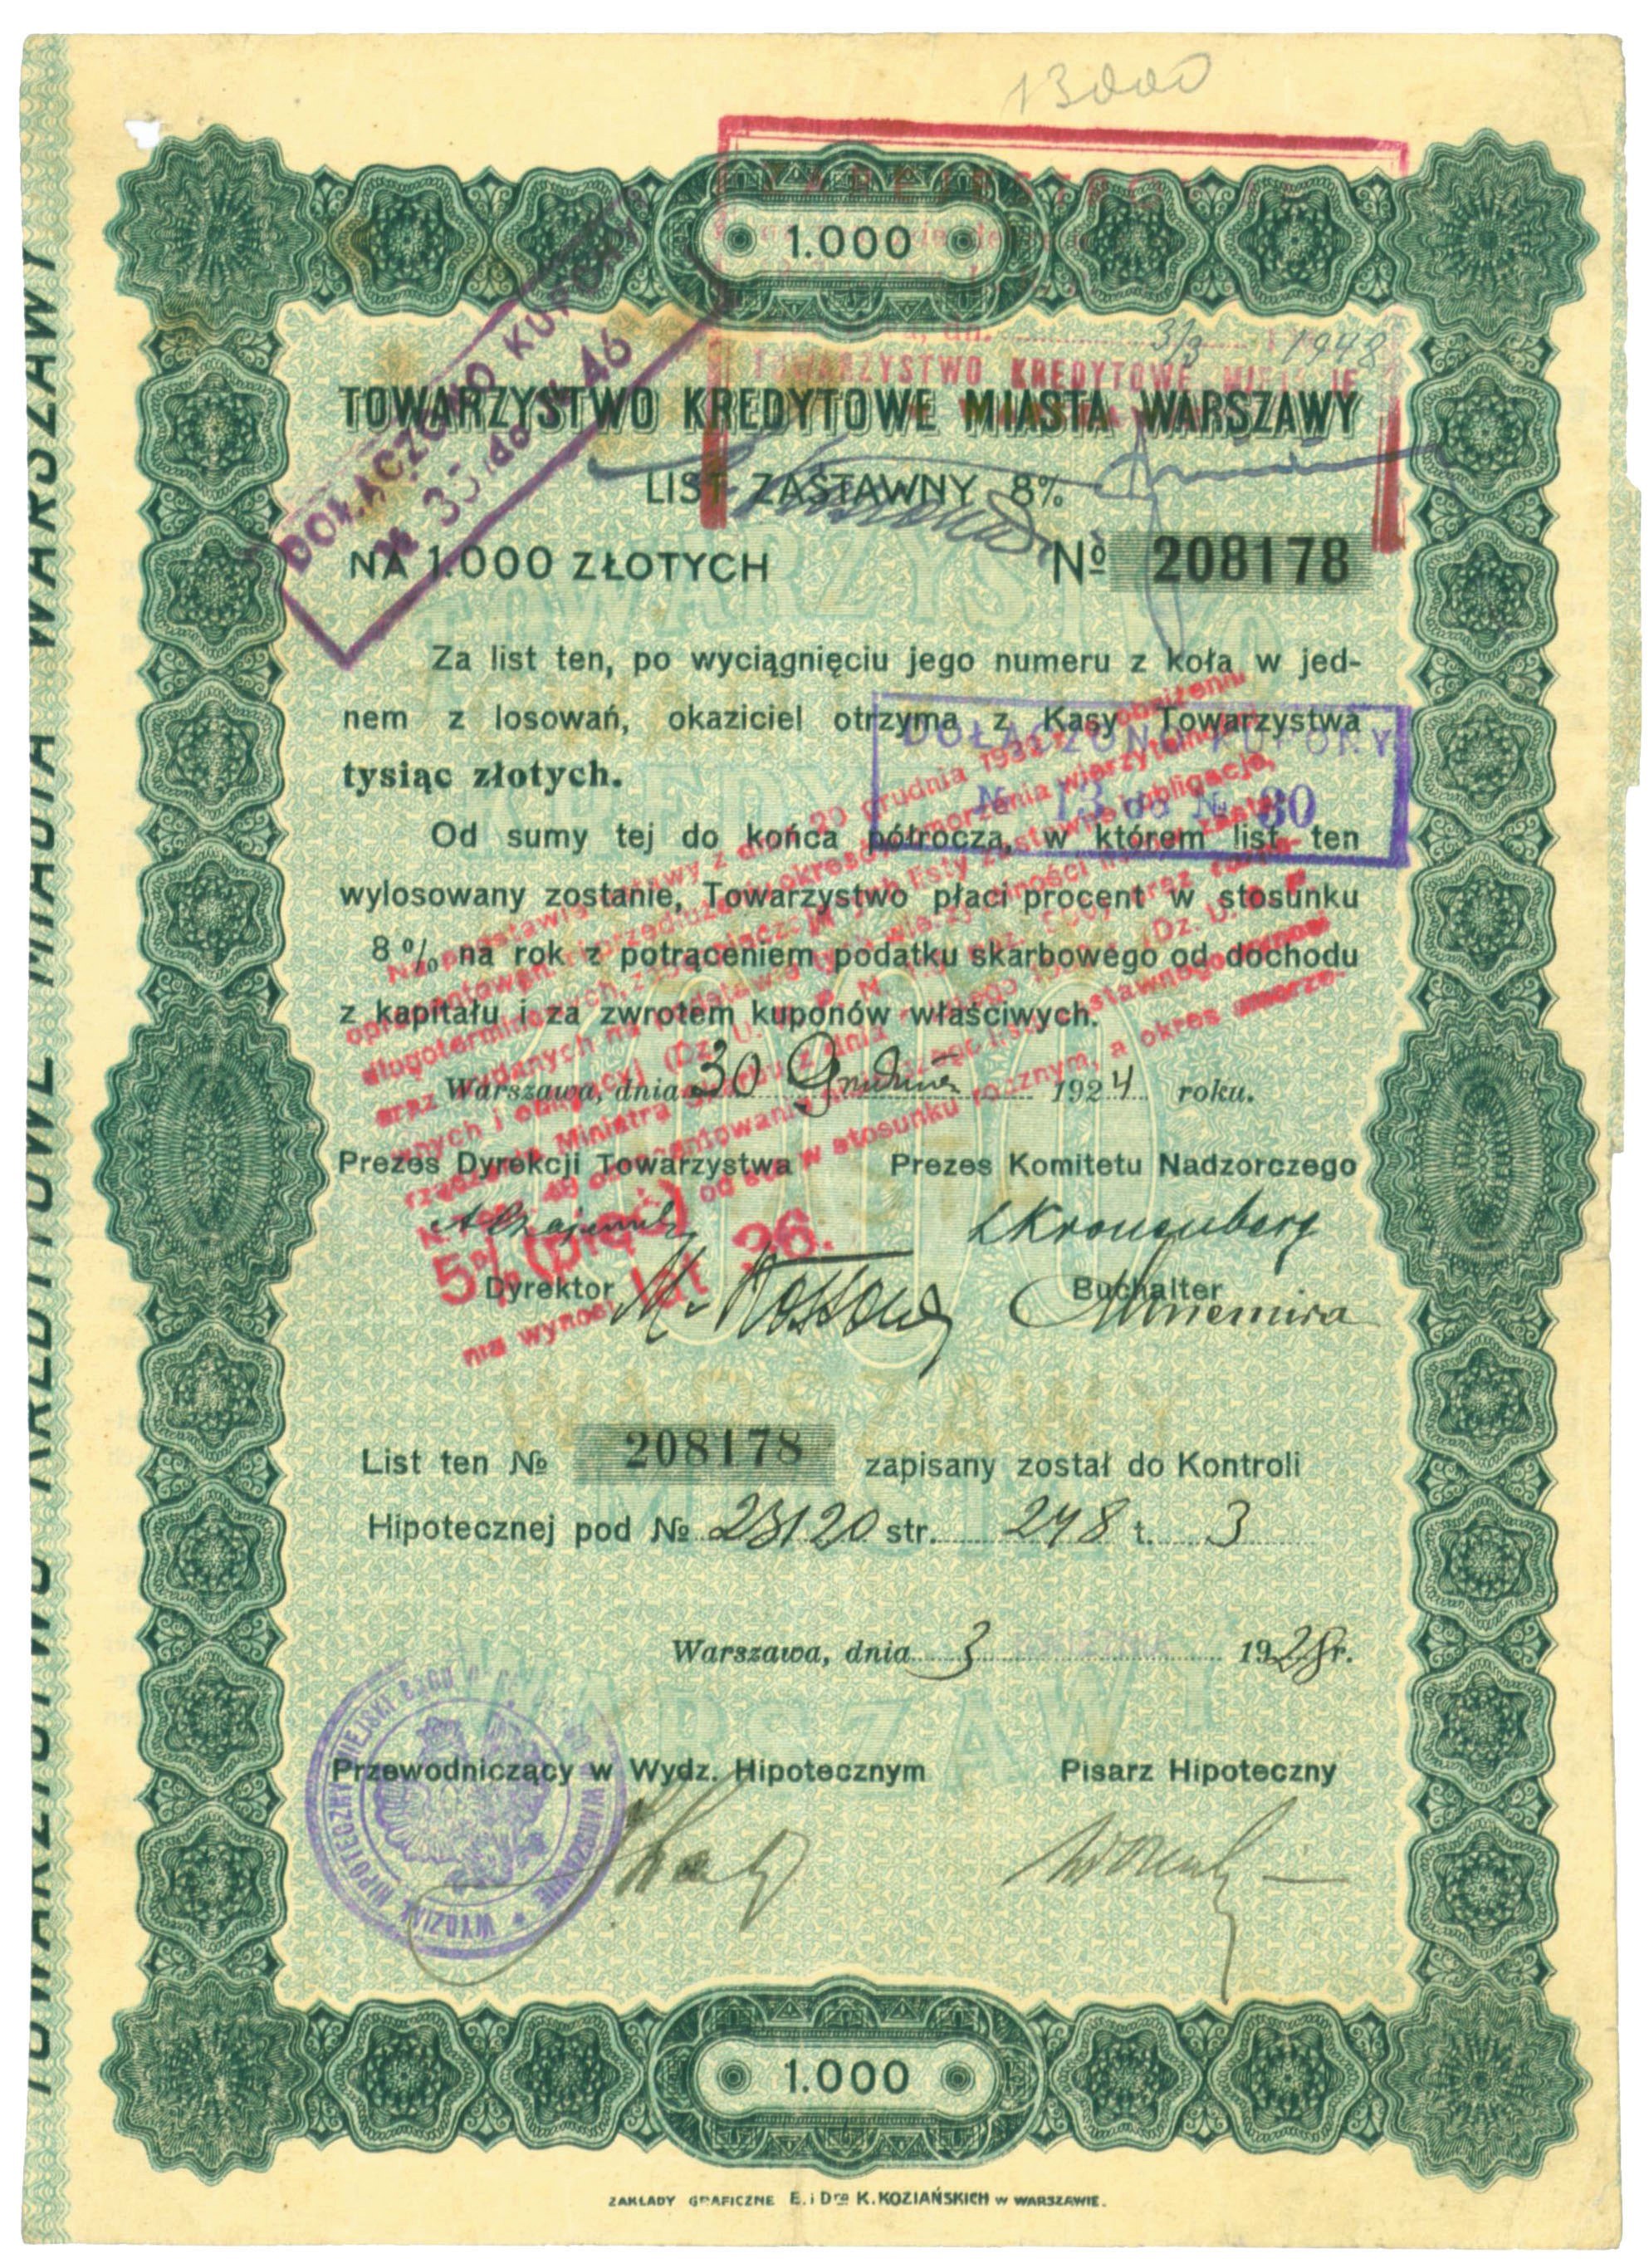 13000
1.000
3/3 1948
TOWARZYSTWO KREDYTOWE MIEJSKIE
DOŁĄCZONO KUPONY
№ 35 do № 46
TOWARZYSTWO KREDYTOWE MIASTA WARSZAWY
LIST ZASTAWNY 8%
NA 1.000 ZŁOTYCH № 208178
Za list ten, po wyciągnięciu jego numeru z koła w jed-
nem z losowań, okaziciel otrzyma z Kasy Towarzystwa
tysiąc złotych.
DOŁĄCZONO KUPONY
№ 13 do № 30
Od sumy tej do końca półrocza, w którem list ten
wylosowany zostanie, Towarzystwo płaci procent w stosunku
8% na rok z potrąceniem podatku skarbowego od dochodu
z kapitału i za zwrotem kuponów właściwych.
Na podstawie ustawy z dnia 20 grudnia 1932 r. o obniżeniu
oprocentowania i przedłużeniu okresów umorzenia wierzytelności
długoterminowych, zabezpieczających listy zastawne i obligacje,
oraz wydanych na podstawie tych wierzytelności listów zastaw-
nych i obligacyj (Dz. U. R. P. N. poz. oraz rozpo-
rządzenia Ministra Skarbu z dnia lutego (Dz. U. R. P.
oprocentowanie niniejszego listu zastawnego wynosi
5% (pięć) od sta w stosunku rocznym, a okres umorze-
nia wynosi lat 26.
Warszawa, dnia 30 Grudnia 1924 roku.
Prezes Dyrekcji Towarzystwa Prezes Komitetu Nadzorczego
LKronenberg
Dyrektor Buchalter
List ten № 208178 zapisany został do Kontroli
Hipotecznej pod № 23120 str. 248 t. 3
Warszawa, dnia 3 1928 r.
Przewodniczący w Wydz. Hipotecznym Pisarz Hipoteczny
WYDZIAŁ HIPOTECZNY MIEJSKI W WARSZAWIE
1.000
ZAKŁADY GRAFICZNE E. i Dra K. KOZIAŃSKICH W WARSZAWIE.
TOWARZYSTWO KREDYTOWE MIASTA WARSZAWY